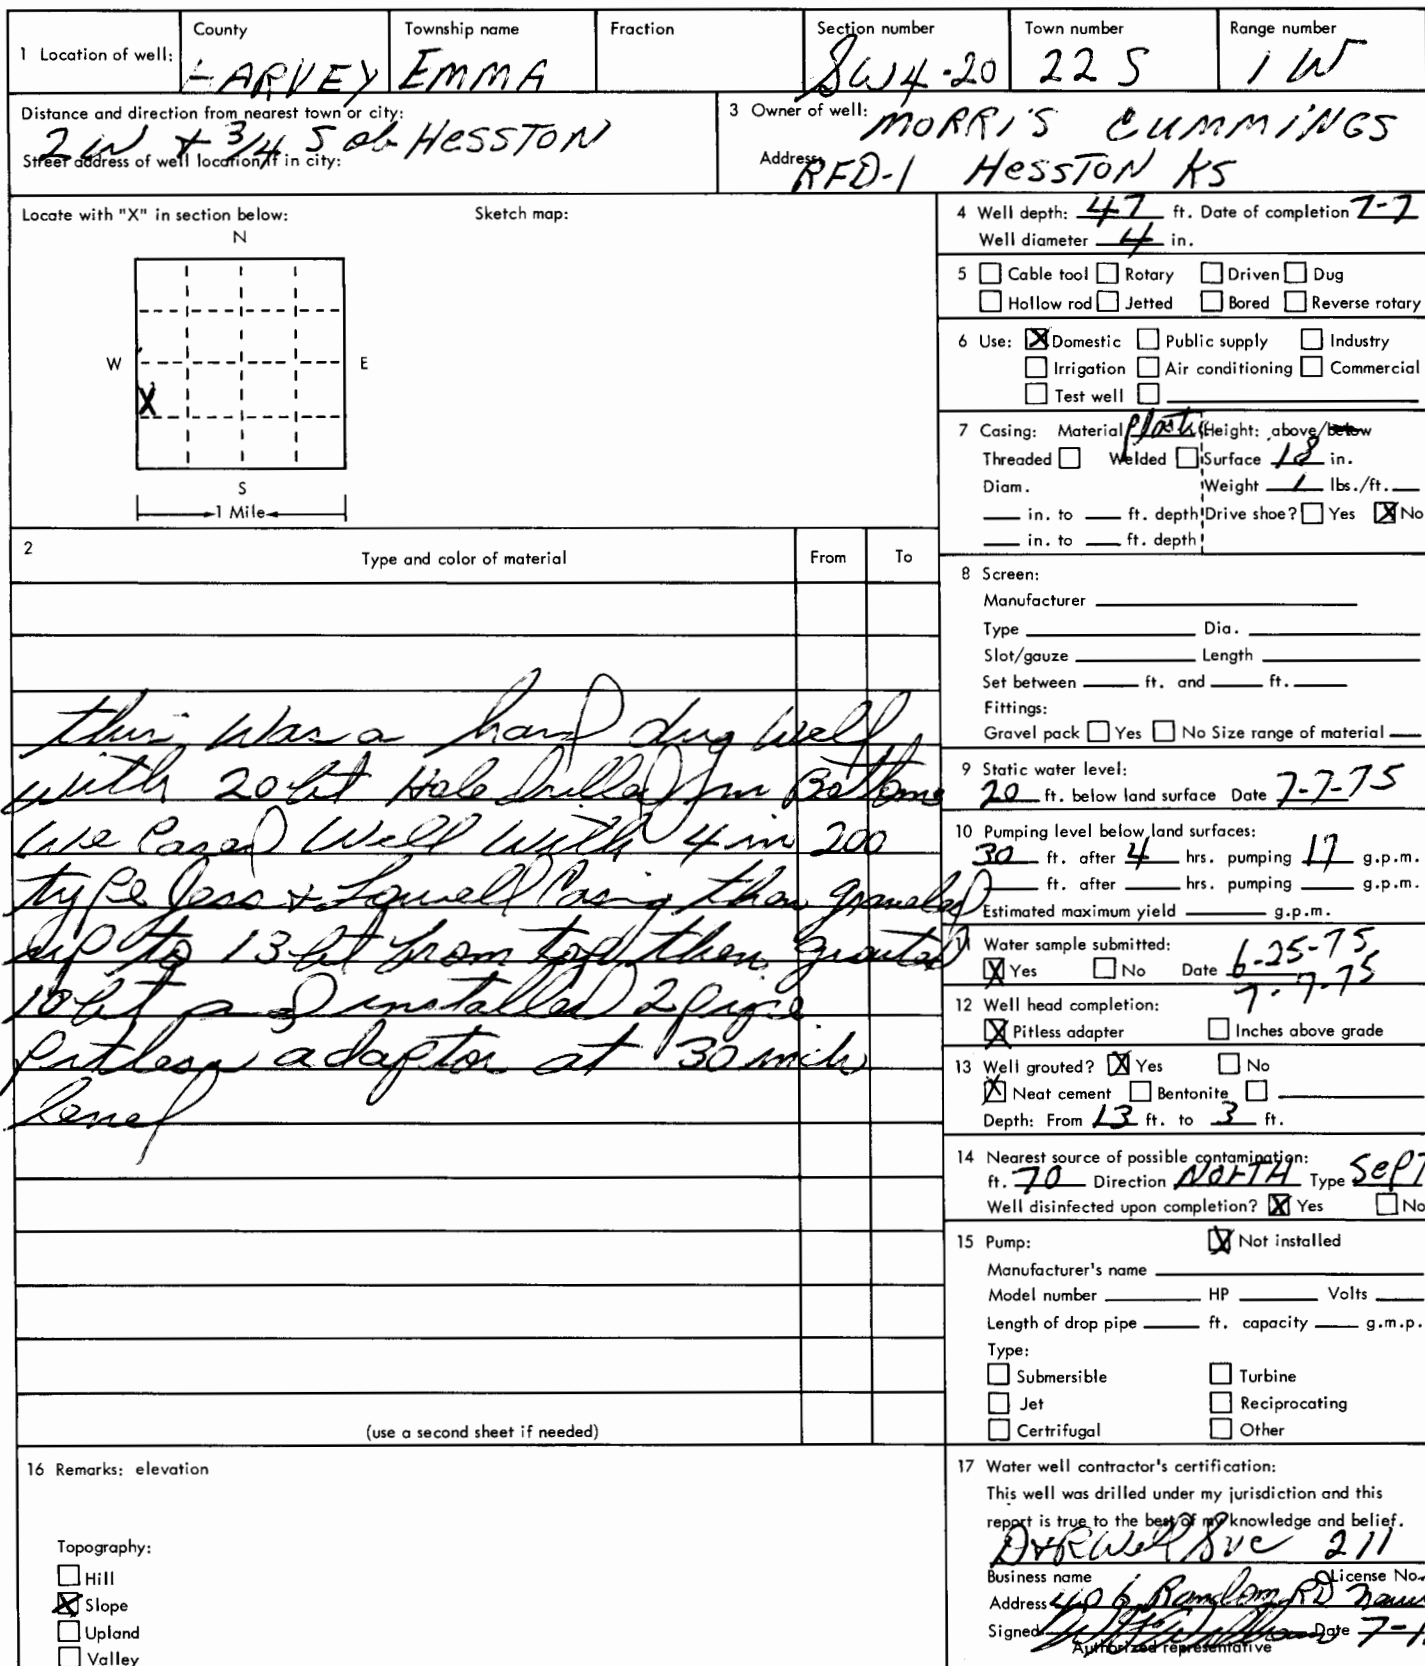 1 Location of well: County HARVEY Township name EMMA Fraction Section number SW4-20 Town number 22 S Range number 1 W
Distance and direction from nearest town or city: 2 W + 3/4 S of HESSTON
Street address of well location, if in city:
3 Owner of well: MORRIS CUMMINGS
Address: RFD-1 HESSTON KS
Locate with "X" in section below: Sketch map:
N
W E
X
S
1 Mile
4 Well depth: 47 ft. Date of completion 7-7
Well diameter 4 in.
5 Cable tool Rotary Driven Dug
Hollow rod Jetted Bored Reverse rotary
6 Use: X Domestic Public supply Industry
Irrigation Air conditioning Commercial
Test well
7 Casing: Material Plastic Height: above/below
Threaded Welded Surface 18 in.
Diam. Weight 1 lbs./ft.
in. to ft. depth Drive shoe? Yes X No
in. to ft. depth
2 Type and color of material From To
this was a hand dug well
with 20 ft Hole drilled in Bottom
We Cased Well With 4 in 200
type Jess & Lowell Casing then graveled
up to 13 ft from top then grouted
10 ft and installed 2 piece
Pitless adaptor at 30 inch
level
(use a second sheet if needed)
8 Screen:
Manufacturer
Type Dia.
Slot/gauze Length
Set between ft. and ft.
Fittings:
Gravel pack Yes No Size range of material
9 Static water level:
20 ft. below land surface Date 7-7-75
10 Pumping level below land surfaces:
30 ft. after 4 hrs. pumping 17 g.p.m.
ft. after hrs. pumping g.p.m.
Estimated maximum yield g.p.m.
11 Water sample submitted: 6-25-75
X Yes No Date 7-7-75
12 Well head completion:
X Pitless adapter Inches above grade
13 Well grouted? X Yes No
X Neat cement Bentonite
Depth: From 13 ft. to 3 ft.
14 Nearest source of possible contamination:
ft. 70 Direction NORTH Type SEPT
Well disinfected upon completion? X Yes No
15 Pump: X Not installed
Manufacturer's name
Model number HP Volts
Length of drop pipe ft. capacity g.m.p.
Type:
Submersible Turbine
Jet Reciprocating
Certrifugal Other
16 Remarks: elevation
Topography:
Hill
X Slope
Upland
Valley
17 Water well contractor's certification:
This well was drilled under my jurisdiction and this
report is true to the best of my knowledge and belief.
D+R Well Svc 211
Business name License No.
Address 406 Random RD
Signed Date 7-1
Authorized representative